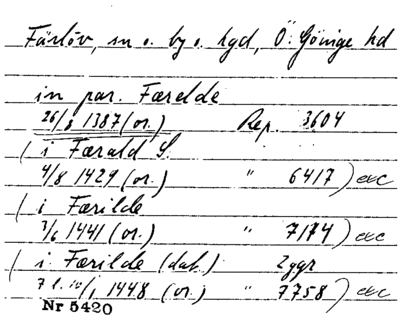 Färlöv, sn o. by o. hgd, Ö: Göinge hd
in par. Færelde
26/8 1387 (or.) Rep. 3604
( i Færald S.
4/8 1429 (or.) " 6417 ) exc
( i Færilde
3/6 1441 (or.) " 7174 ) exc
( i Færilde (dat.) 2 ggr
7 l. 10/1 1448 (or.) " 7758 ) exc
Nr 5420